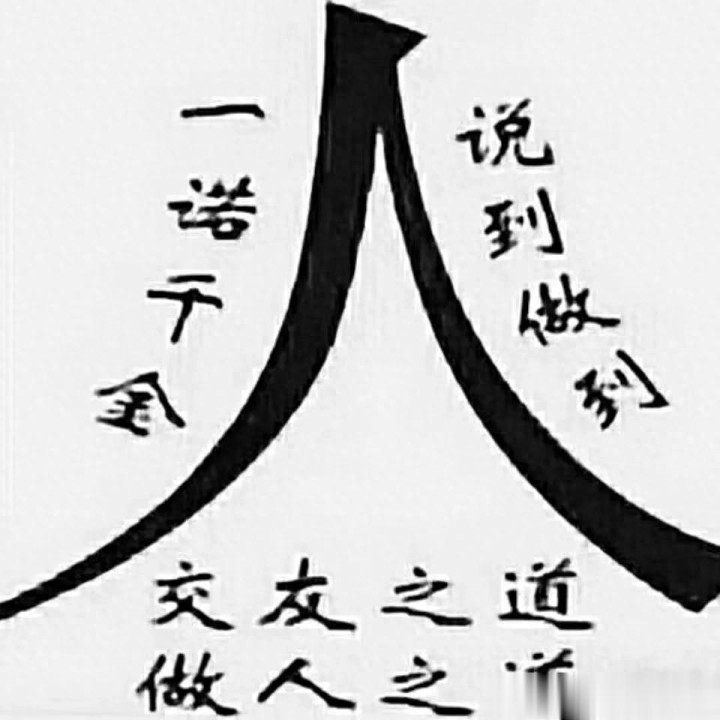 人
一诺千金
说到做到
交友之道
做人之道